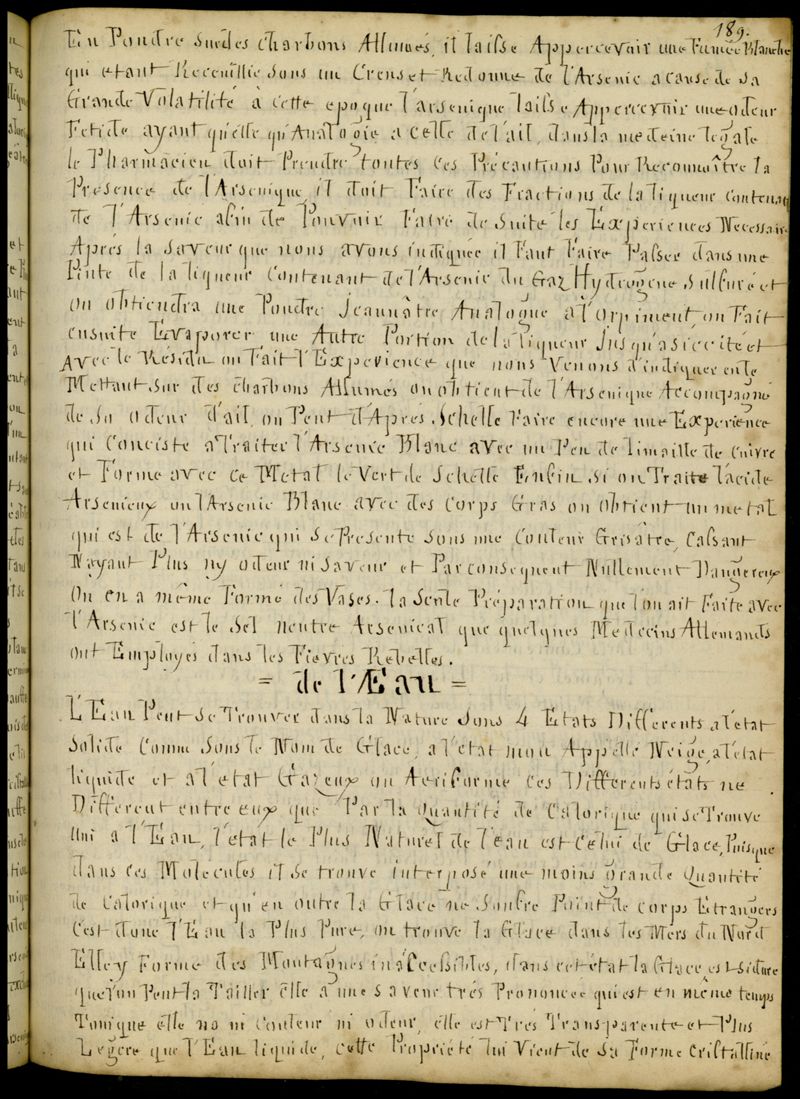 189.
En Poudre Sur des charbons Allumés, il laisse Appercevoir une Fumée Blanche
qui etant Receuillie Sous un Creuset Redonne de l'Arsenic a cause de Sa
Grande Volatilité à cette epoque l'arsenique laisse Appercevoir une odeur
Fetide ayant quelle qu'Analogie a Celle de l'ail, dans la medeine legale
le Pharmacien doit Prendre toutes ces Précautions Pour Reconnoître la
Presence de l'Arsenique, il doit Faire des Fractions de la liqueur Contenant
de l'Arsenic afin de Pouvoir Faire de Suite les Experiences Necessair
Après la Saveur que nous avons indiquée il Faut Faire Passer dans une
Pinte de la liqueur Contenant de l'Arsenic du Gaz Hydrogene Sulfuré et
on obtiendra une Poudre Jeaunâtre Analogue a l'orpiment on Fait
ensuite Evaporer, une Autre Portion de la liqueur Jusqu'a Siccité et
Avec le Residu on Fait l'Experience que nous Venons d'indiquer en le
Mettant Sur des charbons Allumés on obtient de l'Arsenique Accompagné
de Sa odeur d'ail on Peut d'Apres Schelle Faire encore une Experience
qui Conciste a Traiter l'Arsenic Blanc avec un Peu de limaille de Cuivre
et Forme avec ce Metal le Vert de Schelle Enfin Si on Traite l'acide
Arsenieux ou l'Arsenic Blanc avec des Corps Gras on obtient un metal
qui est de l'Arsenic qui Se Presente Sous une Couleur Grisâtre, Cassant
N'ayant Plus ny odeur ni Saveur et Par consequent Nullement Dangereux
On en a même Formé des Vases. la Seule Préparation que l'on ait Faite avec
l'Arsenic est le Sel neutre Arsenical que quelques Medecins Allemands
ont Employés dans les Fievres Rebelles.
= de l'Eau =
L'Eau Peut Se Trouver dans la Nature Sous 4 Etats Differents a l'etat
Solide Comme Sous le Nom de Glace, a l'etat mou Appellé Neige, a l'etat
liquide et a l'etat Gazeux ou Aeriforme Ces Differents états ne
Different entre eux que Par la Quantité de Calorique qui se Trouve
Uni a l'Eau, l'etat le Plus Naturel de l'eau est Celui de Glace, Puisque
dans ces Molecules il Se trouve interposé une moins Grande Quantité
de Calorique et qu'en outre la Glace ne Soufre Point de Corps Etrangers
C'est donc l'Eau la Plus Pure, on trouve la Glace dans les Mers du Nord
Elle y Forme des Montagnes inaccessibles, dans cet état la Glace est Si dure
que l'on Peut la Tailler elle a une Saveur très Prononcée qui est en même temps
Tonique elle na ni Couleur ni odeur, elle est Très Transparente et Plus
Legère que l'Eau liquide, cette Propriété lui Vient de Sa Forme Cristalline